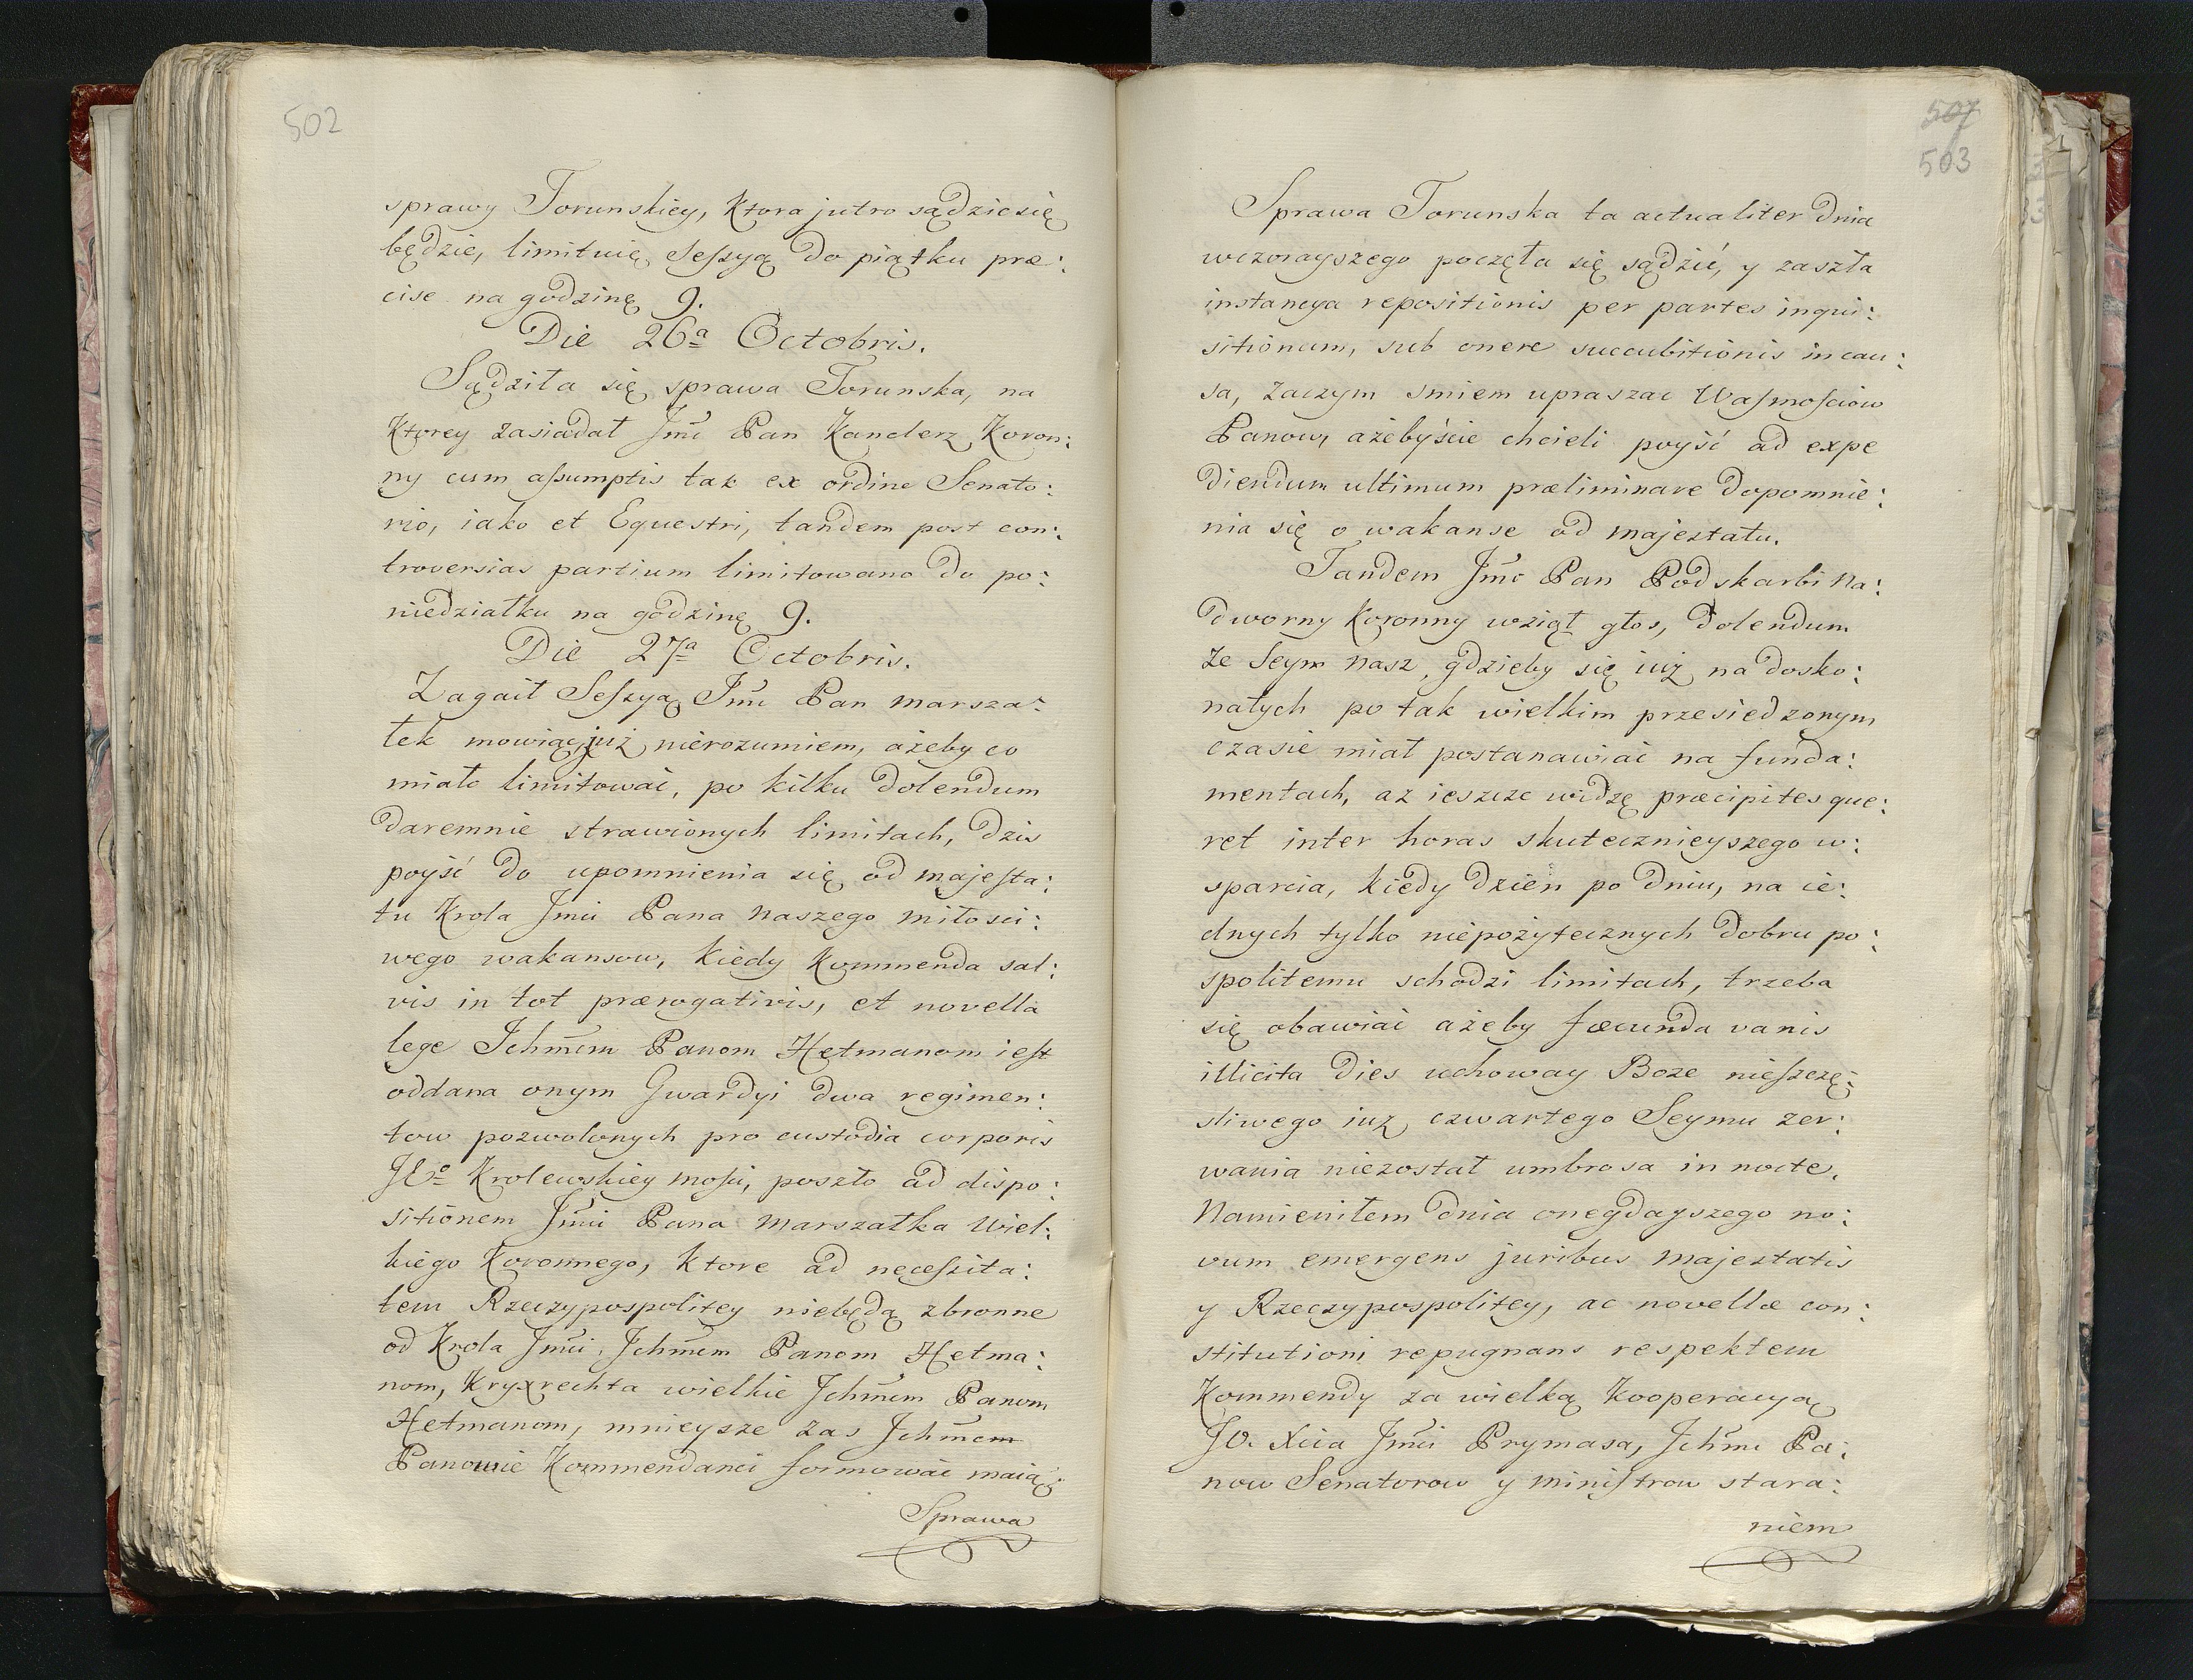 502
sprawy Torunskiey, ktora jutro sądzic się
będzie, limituię Seſsyą do piątku præ:
cise na godzinę 9.
Die 26ª Octobris.
Sądziła się sprawa Torunska, na
ktorey zasiadał Jmć Pan Kanclerz Koron:
ny cum aſsumptis tak ex ordine Senato:
rio, iako et Equestri, tandem post con:
troversias partium limitowano do po:
niedziałku na godzinę 9.
Die 27ª Octobris.
Zagaił Seſsyą Jmć Pan marsza:
łek mowiąc, już nierozumiem, ażeby co
miało limitować, po kilku dolendum
daremnie strawionych limitach, dzis
poyść do upomnienia się od majeſta:
tu Krola Jmći Pana naszego miłosci:
wego wakansow, kiedy kommenda sal:
vis in tot prærogativis, et novella
lege Jchmćm Panom Hetmanom ieſt
oddana onym Gwardyi dwa regimen:
tow pozwolonych pro custodia corporis
JEº Krolewskiey mości, poszło ad dispo:
sitionem Jmći Pana marszałka Wiel:
kiego Koronnego, ktore ad neceſsita:
tem Rzeczypospolitey niebędą zbronne
od Krola Jmći, Jchmćm Panom Hetma:
nom, Kryxrechta wielkie Jchmćm Panom
Hetmanom, mnieysze zas Jchmćm
Panowie Kommendanci formować maią:
Sprawa
507
503
Sprawa Torunska ta actualiter dnia
wczorayszego poczęła się sądzić, y zaszła
instancya repositionis per partes inqui:
sitionum, sub onere succubitionis in cau:
sa, zaczym smiem upraszac Waſmoſciow
Panow, ażebyście chcieli poyść ad expe
diendum ultimum præliminare dopomnie:
nia się o wakanse od majestatu.
Tandem Jmć Pan Podskarbi Na:
dworny Koronny wziął głos, dolendum
że Seym nasz, gdzieby się iuż na dosko:
nałych po tak wielkim przesiedzonym
czasie miał postanawiać na funda:
mentach, az ieszcze widzę præcipites quæ:
ret inter horas skutecznieyszego w:
sparcia, kiedy dzien po dniu, na ie:
dnych tylko niepożytecznych dobru po:
spolitemu schodzi limitach, trzeba
się obawiać ażeby fæcunda vanis
illicita dies uchoway Boze nieſzczę:
sliwego iuż czwartego Seymu zer:
wania niezostał umbrosa in nocte.
Namieniłem dnia onegdayszego no:
vum emergens juribus majestatis
y Rzeczypospolitey, ac novellæ con:
stitutioni repugnans respektem
Kommendy za wielką kooperacyą
JO. Xcia Jmći Prymasa, Jchmć Pa:
now Senatorow y miniſtrow stara:
niem